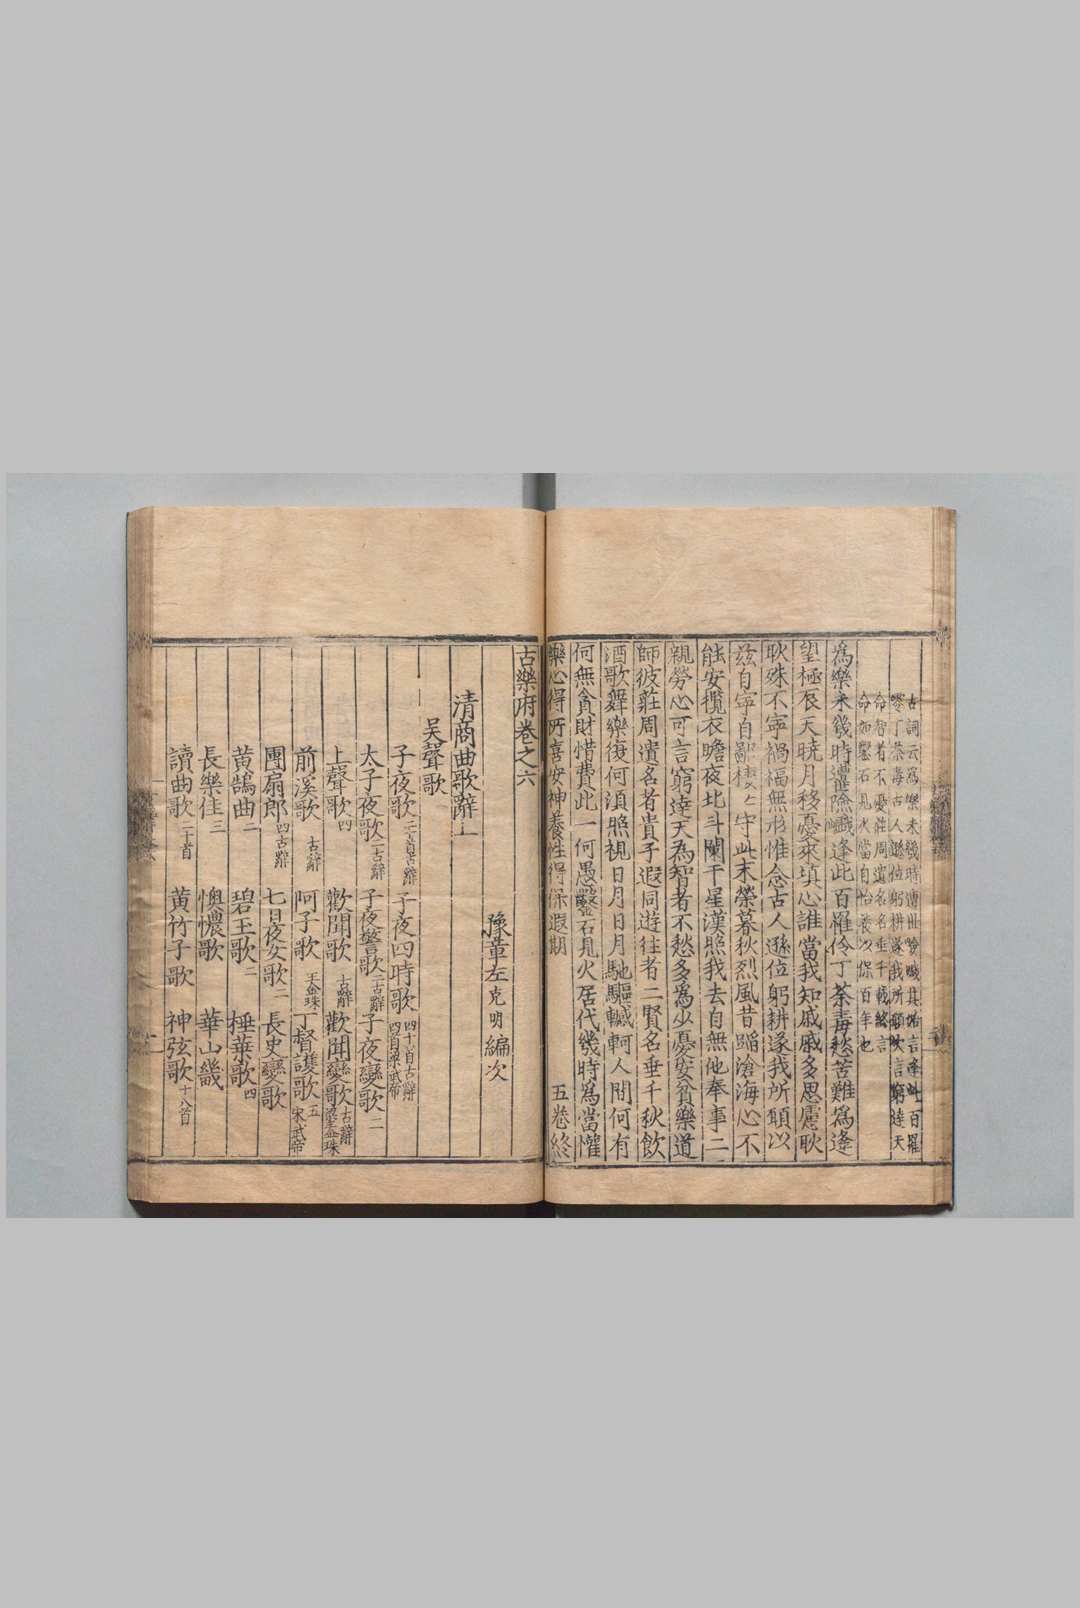 古詞云爲樂未幾時遭世嶮巇其始言逢此百罹
零丁荼毒古人遜位躬耕遂我所願次言窮達天
命智者不憂莊周遺名名垂千載終言
命如鑿石見火當自怡養以保百年也
爲樂未幾時遭嶮巇逢此百罹伶丁荼毒愁苦難爲遙
望極辰天曉月移憂來填心誰當我知戚戚多思慮耿
耿殊不寧禍福無形惟念古人遜位躬耕遂我所願以
茲自寧自鄙棲守此末榮暮秋烈風昔蹈滄海心不
能安攬衣瞻夜北斗闌干星漢照我去自無他奉事二
親勞心可言窮達天為智者不愁多爲少憂安貧樂道
師彼莊周遺名者貴子遐同遊往者二賢名垂千秋飲
酒歌舞樂復何須照視日月日月馳驅轗軻人間何有
何無貪財惜費此一何愚鑿石見火居代幾時爲當懽
樂心得所喜安神養性得保遐期 五卷終
古樂府卷之六
豫章左克明編次
清商曲歌辭上
吳聲歌
子夜歌 古辭 子夜四時歌 四十首古辭 四首梁武帝
太子夜歌 二古辭 子夜警歌 二古辭 子夜變歌二
上聲歌四 歡聞歌 古辭 歡聞變歌 古辭 梁王金珠
前溪歌 古辭 阿子歌 王金珠 丁督護歌 五宋武帝
團扇郎 四古辭 七日夜女歌二 長史變歌
黃鵠曲二 碧玉歌二 桃葉歌四
長樂佳三 懊憹歌 華山畿
讀曲歌 二十首 黃竹子歌 神弦歌 十八首